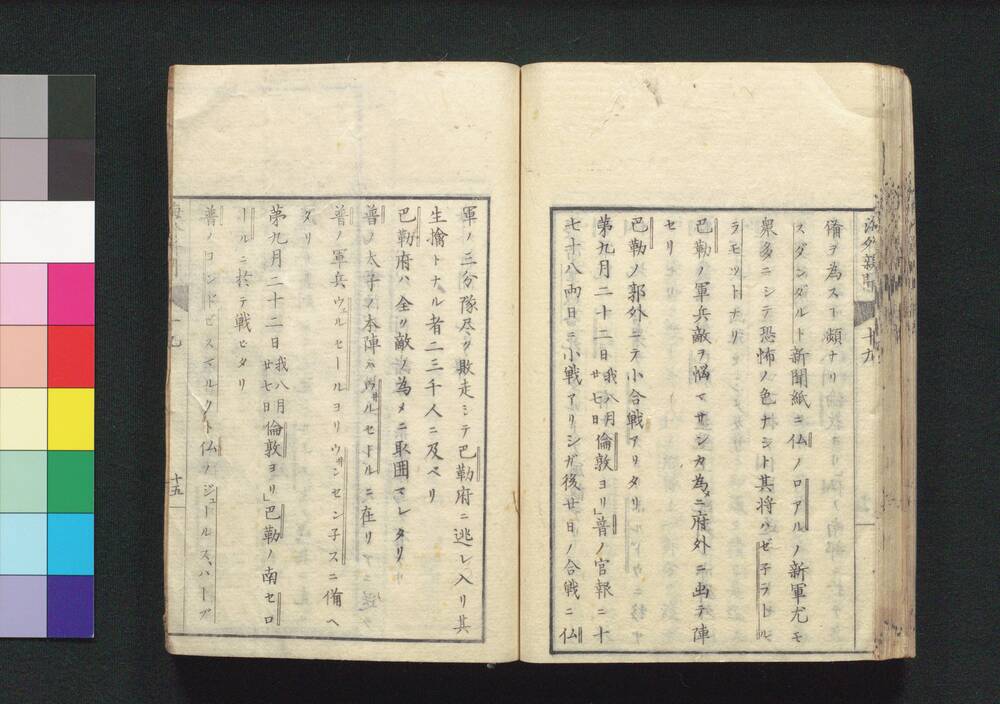 海外新聞 十九
備ヲ為スヿ頻ナリ
スダンダルト新聞紙ニ仏ノロアルノ新軍尤モ
衆多ニシテ恐怖ノ色ナシト其将ハゼ子ラトル
ラモットナリ
巴勒ノ軍兵敵ヲ悩マサンカ為ニ府外ニ出テ陣
セリ
巴勒ノ郭外ニテ小合戦アリタリ
第九月二十二日我八月廿七日倫敦ヨリ」普ノ官報ニ十
七十八両日ニ小戦アリシガ後廿日ノ合戦ニ仏
軍ノ三分隊尽ク敗走シテ巴勒府ニ逃レ入リ其
生擒トナル者二三千人ニ及ベリ
巴勒府ハ全ク敵ノ為メニ取囲マレタリ
普ノ太子ノ本陣ハウルセールニ在リ
普ノ軍兵ウェルセールヨリウヰンセン子スニ備ヘ
タリ
第九月二十二日我八月廿七日倫敦ヨリ」巴勒ノ南セロ
ールニ於テ戦ヒタリ
普ノコンドビスマルクト仏ノジュールス、ハーブ
十五